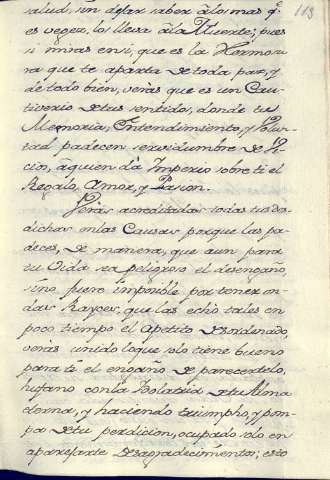 113
salud, sin dejar saber âlos mas q.ͤ
es vejez, los lleva âla Muerte; pues
si miras ensi, que es la Hermosu
ra que te aparta de toda paz, y
de todo bien, verâs que es un Cau-
tiverio detus sentidos, donde tu
Memoria, Entendimiento, y Volun-
tad padecen servidumbre de Vi-
cios, âquien dâ Imperio sobre ti el
Regalo, Amor, y Pasion.
Verâs acreditadas todas tus des-
dichas enlas Causas porque las pa-
deces, De manera, que aun para
tu Vida sea peligroso el desengaño,
sino fuere imposible por tener on-
das Rayces, que las echô tales en
poco tiempo el Apetito Desordenado,
verâs unido loque solo tiene bueno
para ti el engaño de parecertelo,
hufano conla Ydolatria detu Alma
dorna, y haciendo triumpho, y pom-
pa detu perdicion, ocupado solo en
aparejarte Desagradecimientos; esto